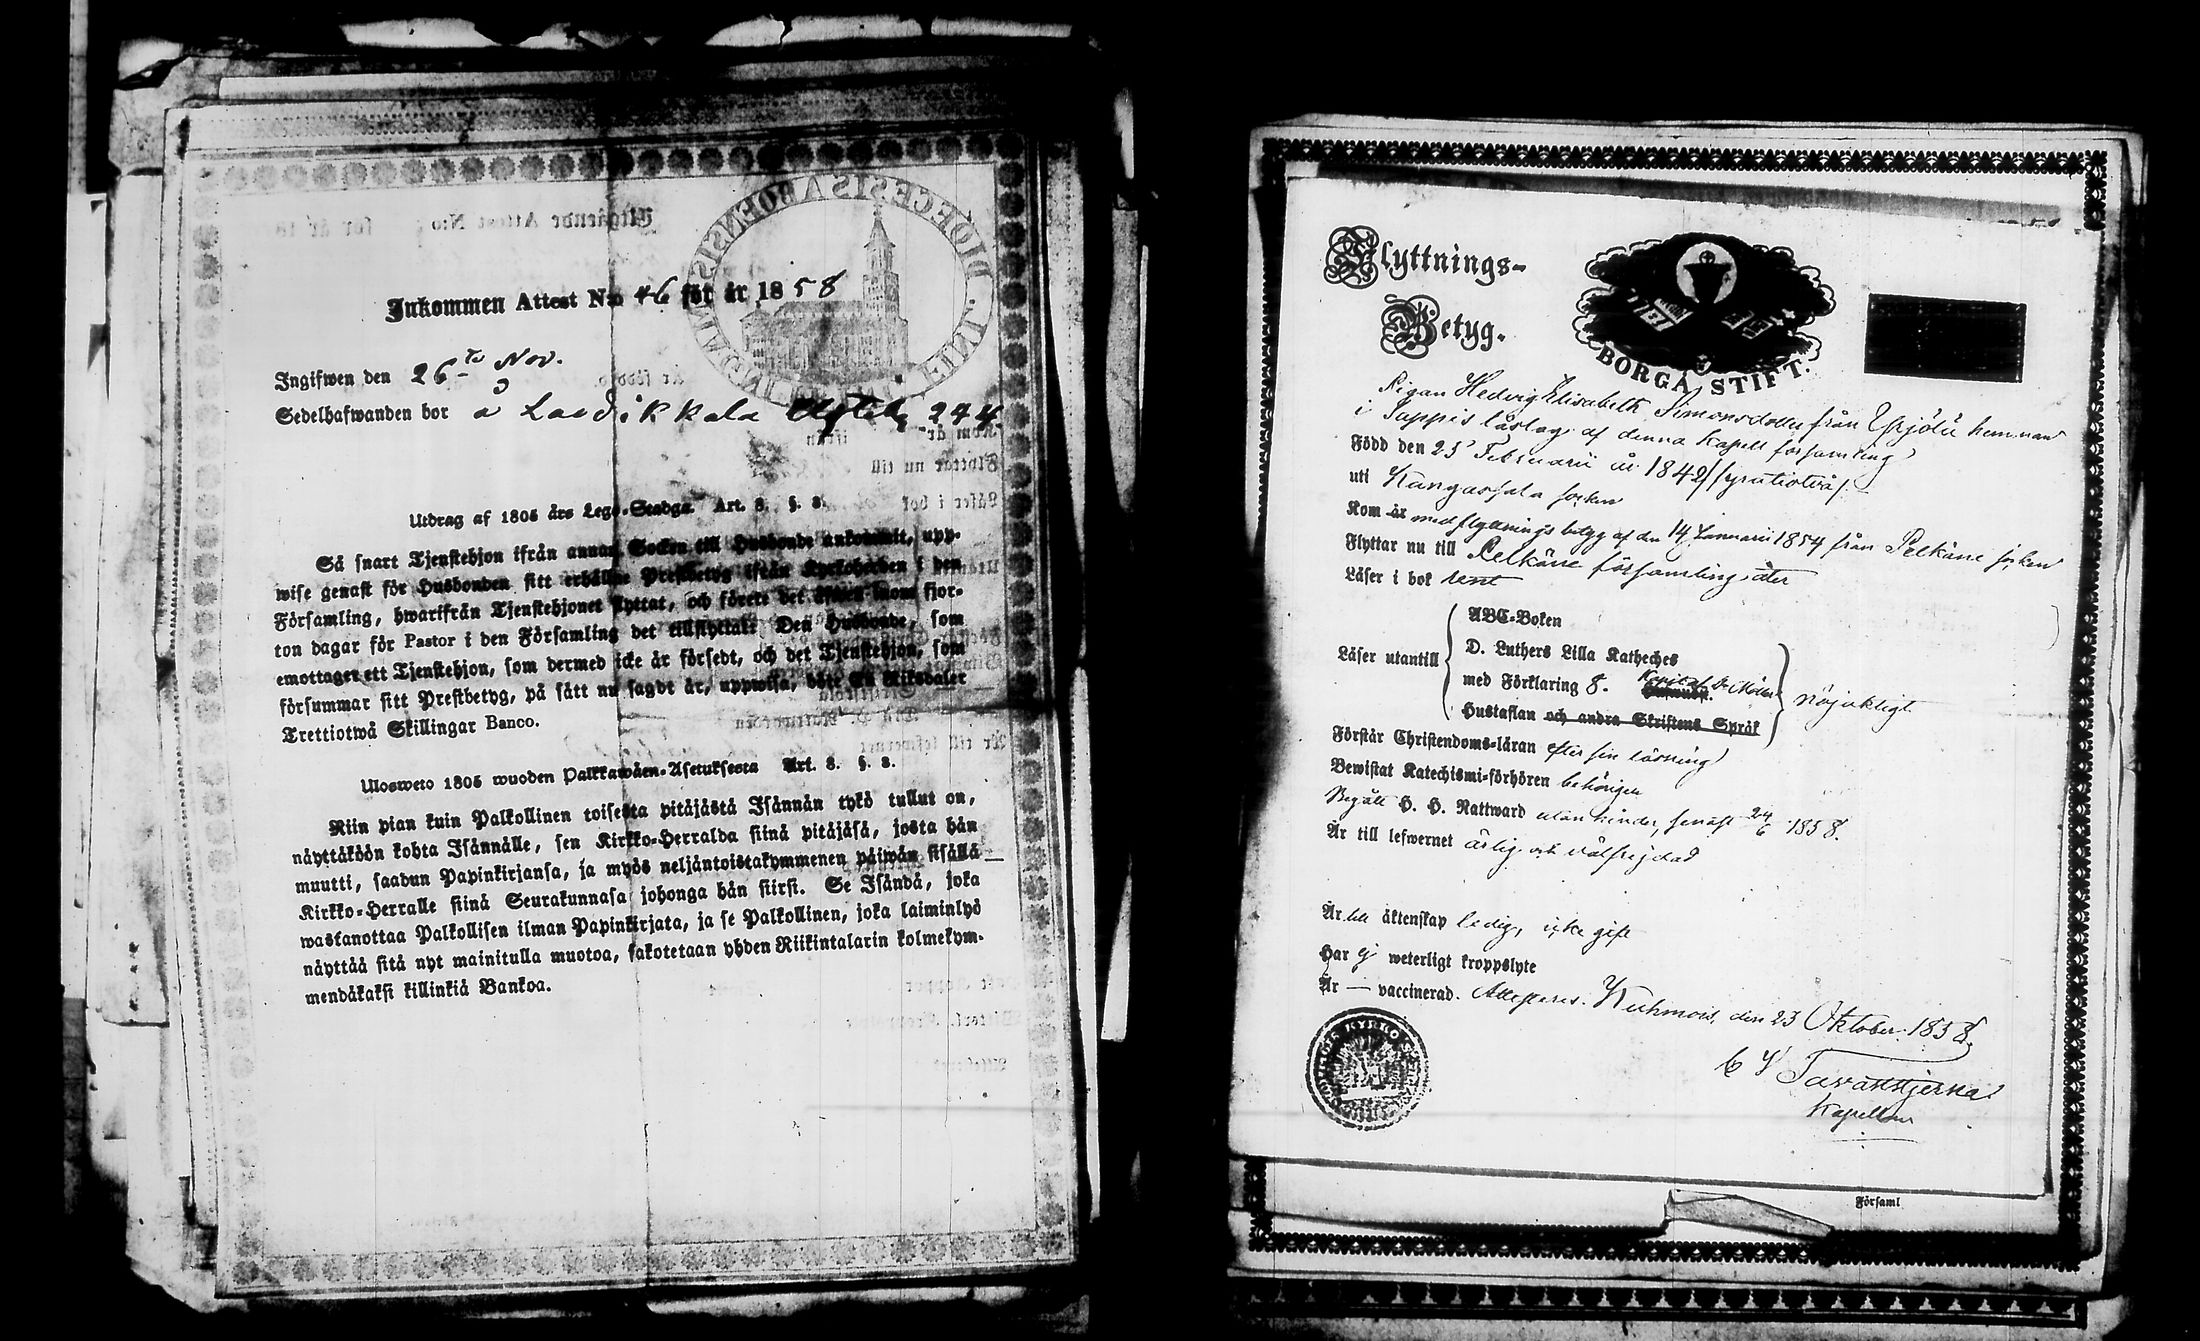 Inkommen Attest N:o 46 för år 1858
Ingifwen den 26te Nov.
Sedelhafwanden bor å Laodikkala 244
Utdrag af 1805 års Lego-Stadga. Art. 8. §. 8.
Så snart Tjenstehjon ifrån annan Socken till Husbonde ankommit, upp-
wise genast för Husbonden sitt erhållne Prestbetyg ifrån Kyrkoherden i den
Församling, hwarifrån Tjenstehjonet flyttat, och förete det äfwen inom fjor-
ton dagar för Pastor i den Församling det tillflyttat. Den Husbonde, som
emottager ett Tjenstehjon, som dermed icke är försedt, och det Tjenstehjon, som
försummar sitt Prestbetyg, på sätt nu sagdt är, uppwisa, böte En Riksdaler
Trettiotwå Skillingar Banco.
Ulosweto 1805 wuoden Palkkawäen-Asetuksesta Art. 8. §. 8.
Niin pian kuin Palkollinen toisesta pitäjästä Isännän tykö tullut on,
näyttäköön kohta Isännälle, sen Kirkko-Herralda siinä pitäjäsä, josta hän
muutti, saadun Papinkirjansa, ja myös neljäntoistakymmenen päiwän sisällä
Kirkko-Herralle siinä Seurakunnasa johonga hän siirsi. Se Isändä, joka
wastanottaa Palkollisen ilman Papinkirjata, ja se Palkollinen, joka laiminlyö
näyttää sitä nyt mainitulla muotoa, sakotetaan yhden Riikintalarin kolmekym-
mendäkaksi killinkiä Bankoa.
Flyttnings-
Betyg.
BORGÅ STIFT.
Pigan Hedvig Elisabeth Simonsdotter från Yrjölä hemman
i Sappis låslag af denna Kapell församling
Född den 25 Februarii år 1842 /fyratiotvå/
uti Kangasala socken
Kom är med flyttnings betyg af den 14 Januarii 1854 från Pelkäne socken
Flyttar nu till Pelkäne församling åter
Läser i bok rent
Läser utantill
ABC-Boken
D. Luthers Lilla Katheches
med Förklaring 8. Kapit. af D. Möller
Hustaflan och andra Skriftens Språk
nöjaktigt
Förstår Christendoms-läran efter sin läsning
Bewistat Katechismi-förhören behörigen
Begått H. H. Nattward utan hinder, senast 24/6 1858.
Är till lefwernet ärlig och välfrejdad
Är till äktenskap ledig, icke gift
Har ej weterligt kroppslyte
Är — vaccinerad. Attesteras. Kuhmois, den 23 Oktober 1858.
Tavaststjerna
Kapellan
Församl